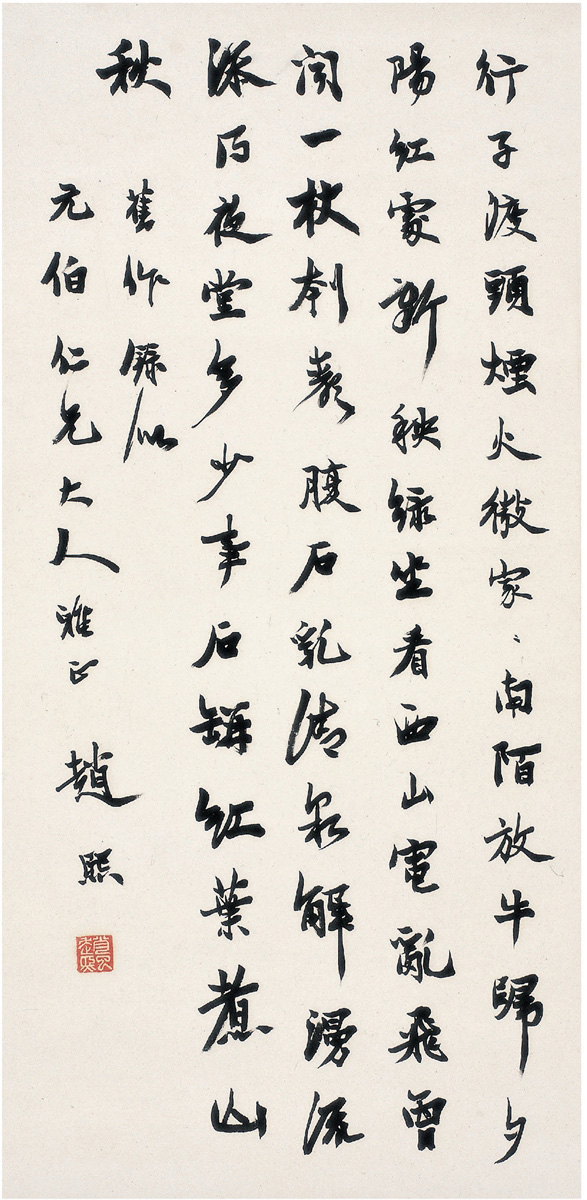 行子渡頭煙火微家〻南陌放牛歸夕
陽紅處新秧綠坐看西山電亂飛曾
聞一杖刺腹石乳清泉解湧流
添夜堂多少事石紅葉煮山
秋
舊作錄似
元伯仁兄大人雅正 趙熙